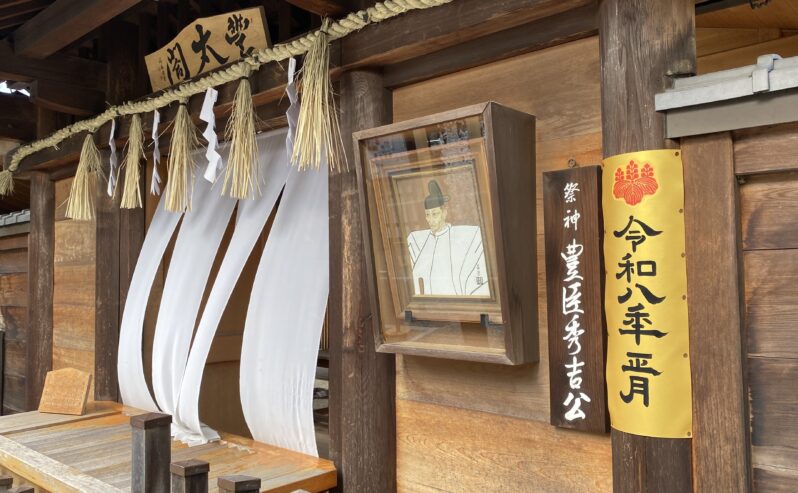 豐太閤
祭神 豊臣秀吉公
令和八年 正月